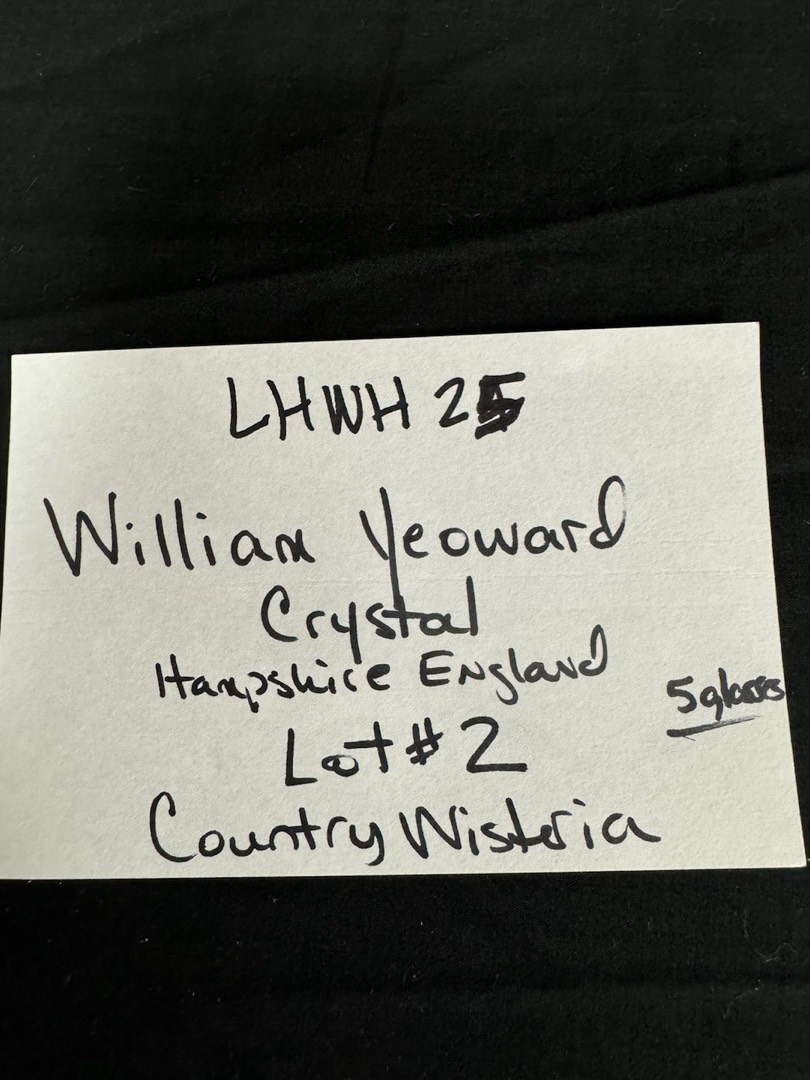 LHWH 25
William Yeoward
Crystal
Hampshire England
5 glasses
Lot # 2
Country Wisteria